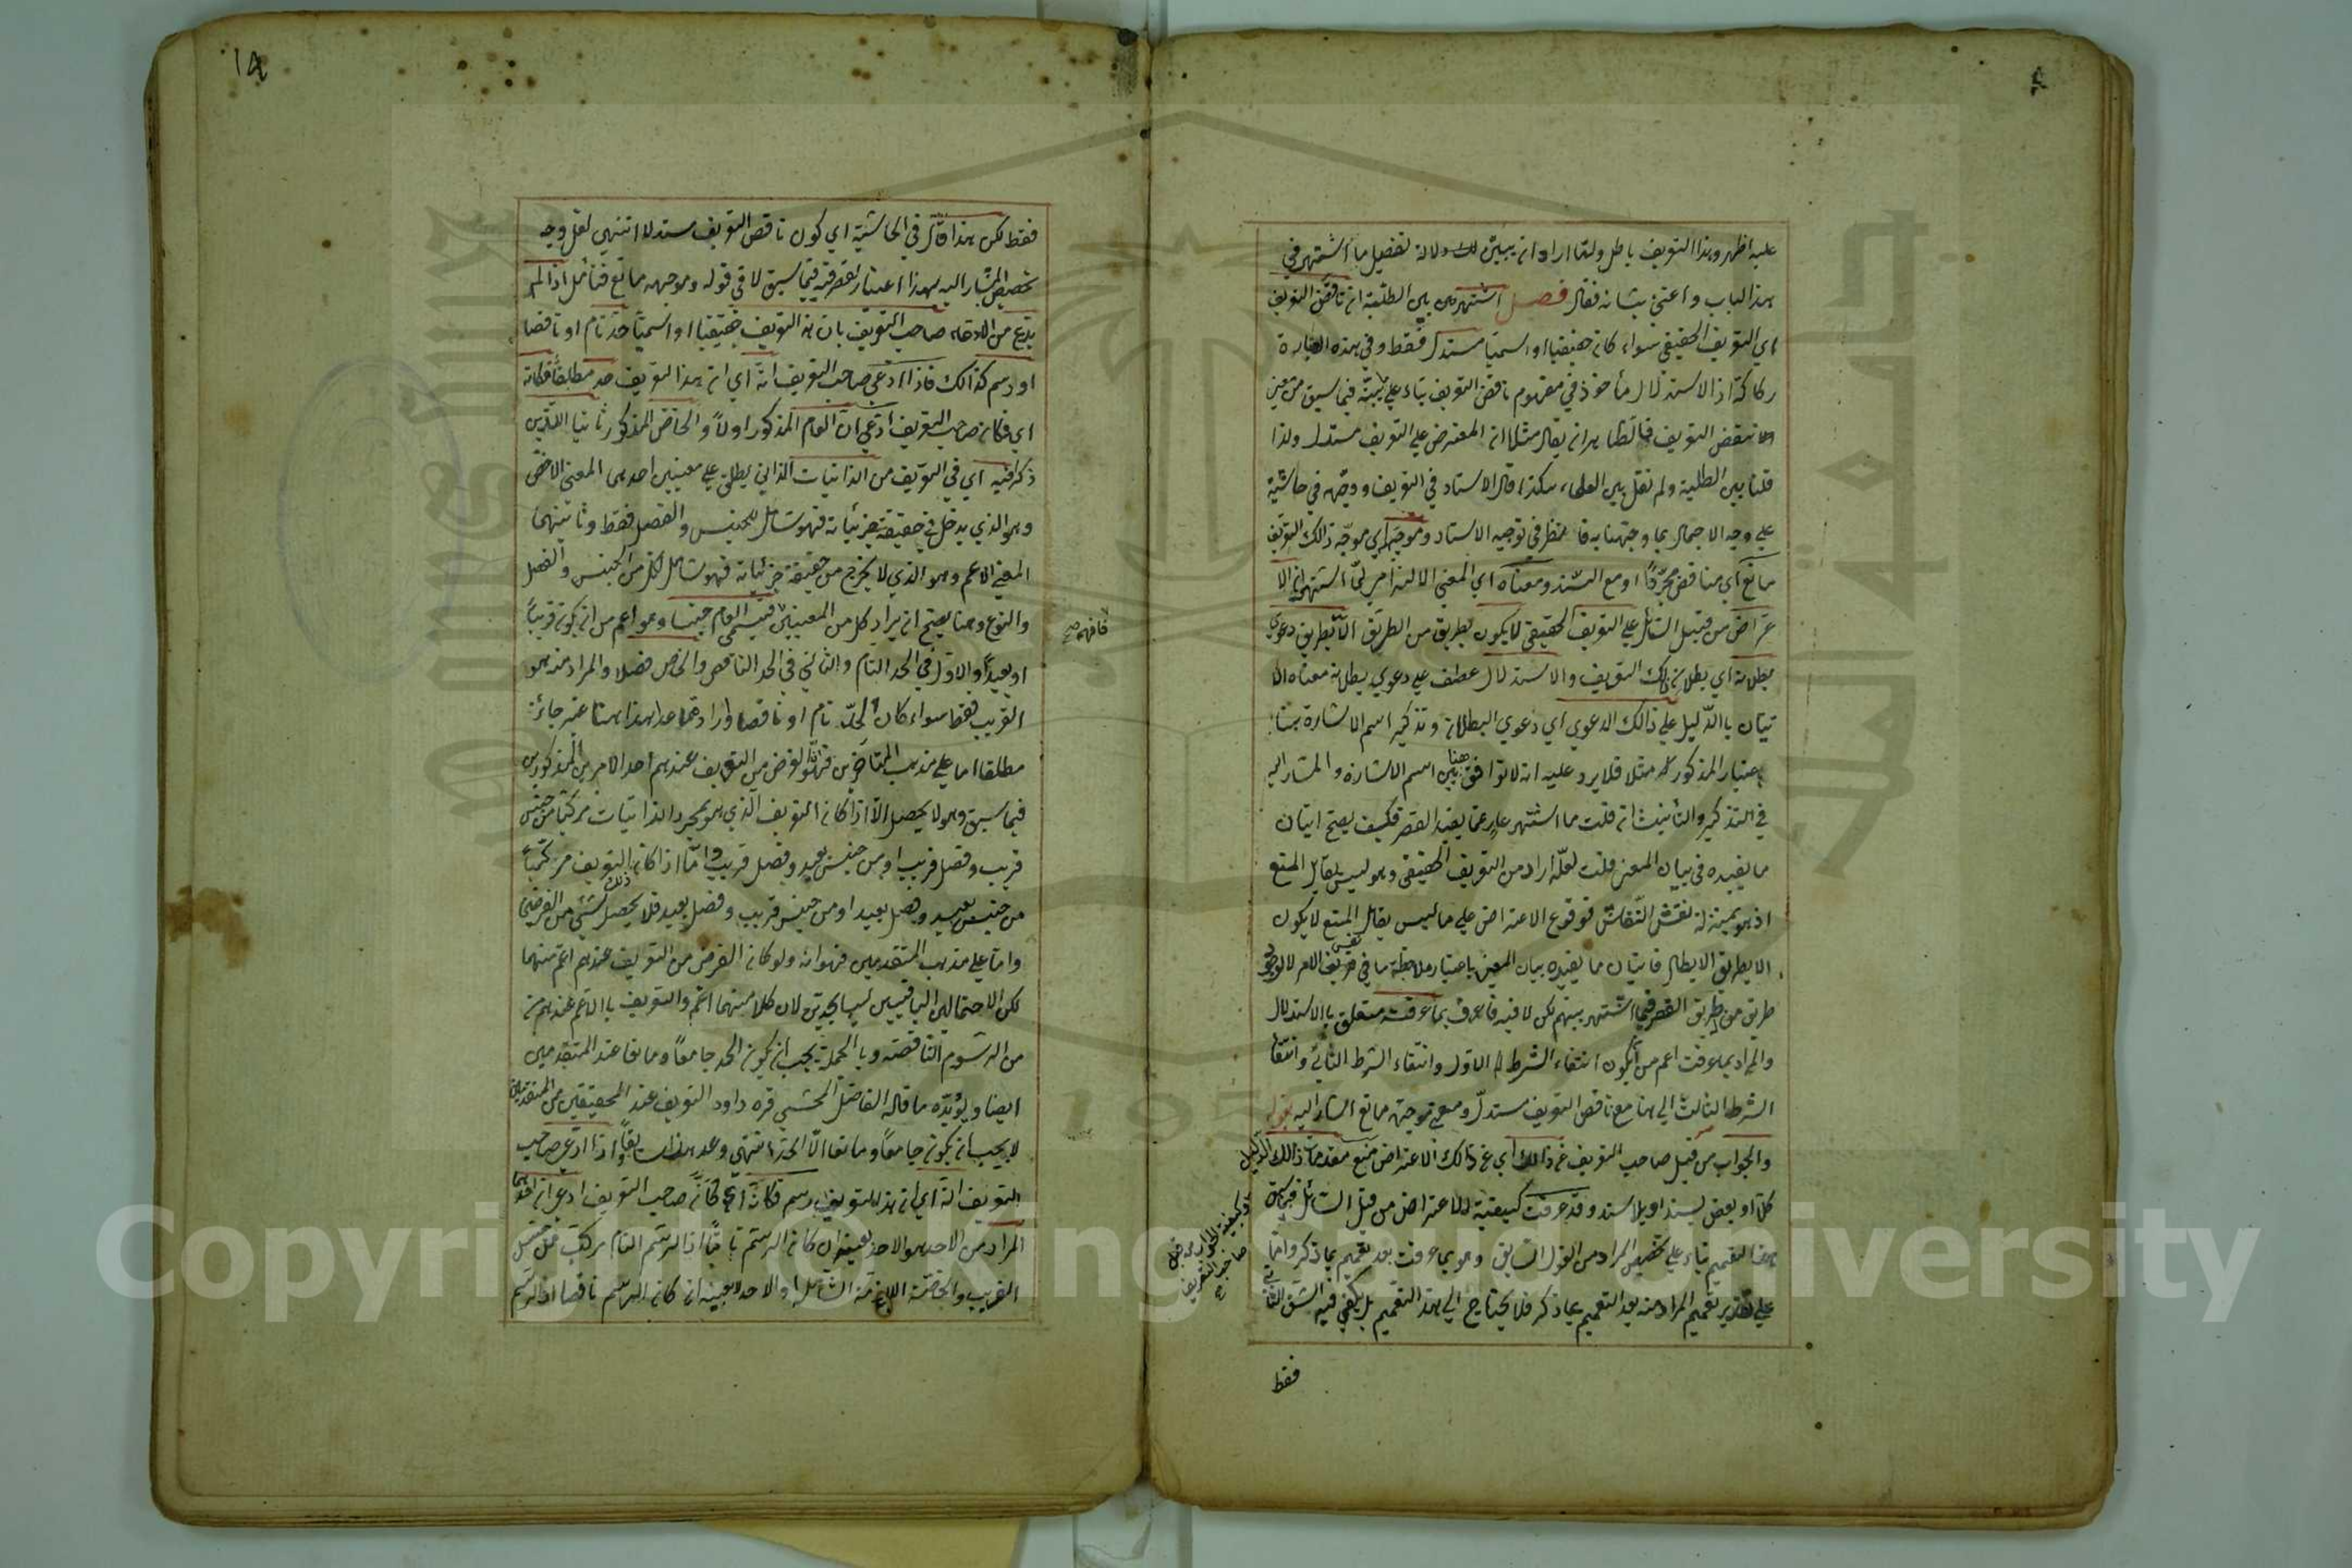 عليه اظهر وهذا التعريف باطل ولما اراد ان يبين لك دلالة تفصيل ما اشتهر في
هذا الباب واعتني بشانه فقال فصل اشتهر من بين الطلبة ان ناقض التعريف
اي التعريف الحقيقي سواء كان حقيقيا او اسميا مستدل فقط وفي هذه العبارة
ركاكة اذ الاستدلال مأخوذ في مفهوم ناقض التعريف بناء علي فيما سبق من
بنقض التعريف فالظاهر ان يقال مثلا ان المعترض علي التعريف مستدل ولذا
قلنا بين الطلبة ولم نقل بين العلماء هكذا قال الاستاد في التعريف ووجهه في حاشية
علي وجه الاجمال بما وجهنا به فانظر في توجيه الاستاد وموجهه اي موجه ذالك التعريف
مانع اي مناقض مجردا او مع السند ومعناه اي المعني الالتزامي لما اشتهر ان الا
عتراض من قبيل السائل علي التعريف الحقيقي لا يكون بطريق من الطريق الا بطريق دعوي
بطلانه اي بطلان ذلك التعريف والاستدلال عطف علي دعوي بطلانه معناه الا
تيان باالدليل علي ذالك الدعوي اي دعوي البطلان وتذكير اسم الاشارة هنا
باعتبار المذكور مثلا فلا يرد عليه انه لا توافق هنا بين اسم الاشارة والمشار اليه
في التذكير والتأنيث ان قلت ما اشتهر عار عما يفيد القصر فكيف يصح اتيان
ما يفيده في بيان المعني قلت لعله اراد من التعريف الحقيقي وهو ليس بقابل المنع
اذ هو بمنزلة نقش النقاش فوقوع الاعتراض علي ما ليس يقابل المنع لا يكون
الا بطريق الابطال فاتيان ما يفيده بيان المعني باعتبار ملاحظة ما في نفس الامر لا لوجود
طريق من طريق القصر فيما اشتهر بينهم لكن لا فيه فاعرف بما عرفت متعلق باالاستدلال
والمراد بما عرفت اعم من ان يكون انتفاء الشرط الاول وانتفاء الشرط الثاني وانتفا
الشرط الثالث الي هنا مع ناقض التعريف مستدل ومعني موجهه مانع اشار اليه بقوله
والجواب من قبل صاحب التعريف عن ذالك اي عن ذالك الاعتراض منع مقدمات ذالك الدليل
كلا او بعض بسند او بلا سند وقد عرفت كيفية الاعتراض من قبل السائل
وكيفية الجواب من قبل
صاحب التعريف
هذا التعميم بناء علي تخصيص المراد من القول السابق وهو بما عرفت بعد تعميم بما ذكر واما
علي تقدير تعميم المراد منه بعد التعميم بما ذكر فلا يحتاج الي هذا التعميم بل يكفي فيه الشق الثاني
فقط
١٨
فقط لكن هذا قال في الحاشية اي كون ناقض التعريف مستدلا انتهي لعل وجه
تخصيص المشار اليه بهذا اعتبار القصر فيه فيما سبق لا في قوله وموجهه مانع فتأمل اذا لم
يدع من الادعاء صاحب التعريف بان هذا التعريف حقيقيا او اسميا حد تام او ناقصا
او رسم كذالك فاذا ادعي صاحب التعريف انه اي ان هذا التعريف حد مطلقا فكانه
اي فكان صاحب التعريف ادعي ان العام المذكور اولا والخاص المذكور ثانيا اللذين
ذكرا فيه اي في التعريف من الذاتيات الذاتي يطلق علي معنيين احدهما المعني الاخص
وهو الذي يدخل في حقيقة جزئياته فهو شامل للجنس والفصل فقط وثانيهما
المعني الاعم وهو الذي لا يخرج من حقيقة جزئياته فهو شامل لكل من الجنس والفصل
والنوع وهنا يصح ان يراد كل من المعنيين فيسمي العام جنسا وهو اعم من ان يكون قريبا
فافهم صح
او بعيدا والاول في الحد التام والثاني في الحد الناقص والخاص فصلا والمراد منه هو
القريب فقط سواء كان الحد تام او ناقصا وارادة ما عدا هذا هنا غير جائز
مطلقا اما علي مذهب المتأخرين فلان الغرض من التعريف عندهم احد الامرين المذكورين
فيما سبق وهو لا يحصل الا اذا كان التعريف الذي هو بمجرد الذاتيات مركبا من جنس
قريب وفصل قريب او من جنس بعيد وفصل قريب واما اذا كان التعريف مركبا
من جنس بعيد وفصل بعيد او من جنس قريب وفصل بعيد فلا يحصل ذلك شئ من الغرضين
واما علي مذهب المتقدمين فهو انه ولو كان الغرض من التعريف عندهم اعم منهما
لكن الاحتمالين الباقيين ليسا بحدين لان كلا منهما اعم والتعريف باالاعم عندهم
من الرسوم الناقصة وباالجملة يجب ان يكون الحد جامعا ومانعا عند المتقدمين
ايضا ويؤيده ما قاله الفاضل المحشي قره داود التعريف عند المحققين من المتقدمين
لا يجب ان يكون جامعا ومانعا الا الحد انتهي وعد هذا سابقا واذا ادعي صاحب
التعريف انه اي ان هذا التعريف رسم فكانه اي فكان صاحب التعريف ادعي ان احدهما
المراد من الاحد هو الاحد بعينه ان كان الرسم تاما اذ الرسم التام مركب من الجنس
القريب والخاصة اللازمة الشاملة او الاحد لا بعينه ان كان الرسم ناقصا اذ الرسم